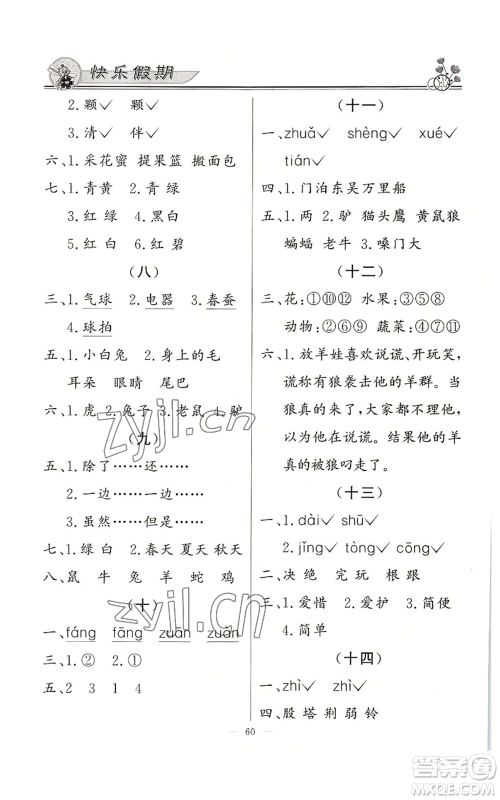 快乐假期
2.颗✓ 颗✓
3.清✓ 伴✓
六、1.采花蜜 提果篮 搬面包
七、1.青黄 2.青 绿
3.红 绿 4.黑白
5.红白 6.红 碧
(八)
三、1.气球 2.电器 3.春蚕
4.球拍
五、1.小白兔 2.身上的毛
耳朵 眼睛 尾巴
六、1.虎 2.兔子 3.老鼠 4.驴
(九)
五、1.除了……还……
2.一边……一边……
3.虽然……但是……
七、1.绿 白 2.春天 夏天 秋天
八、鼠 牛 兔 羊 蛇 鸡
(十)
一、fáng fāng zuān zuǎn
三、1.① ② 2.① ①
五、2 3 1 4
(十一)
一、zhuǎ✓ shèng✓ xué✓
tián✓
四、1.门泊东吴万里船
五、1.两 2.驴 猫头鹰 黄鼠狼
蝙蝠 老牛 3.嗓门大
(十二)
三、花:①⑩⑫ 水果:④⑤⑪
动物:②⑥⑨ 蔬菜:③⑦⑧
六、1.放羊娃喜欢说谎、开玩笑,
谎称有狼袭击他的羊群。当
狼真的来了,大家都不理他,
以为他在说谎。结果他的羊
真的被狼叼走了。
(十三)
一、1.dài✓ shū✓
2.jǐng✓ tòng✓ cōng✓
二、决 绝 完 玩 根 跟
三、1.爱惜 2.爱护 3.简便
4.简单
(十四)
一、zhì✓ zhì✓
四、股 塔 荆 弱 铃
60
zyjl.cn
zyjl.cn
作业精灵